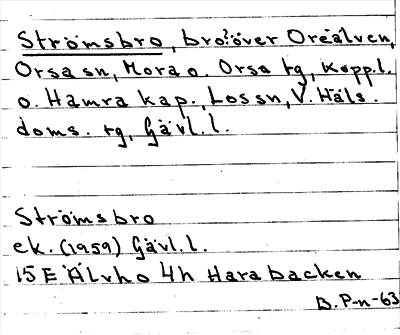 Strömsbro, bro? över Oreälven,
Orsa sn, Mora o. Orsa tg, Kopp.l.
o. Hamra kap., Los sn, V. Häls.
doms. tg, Gävl.l.
Strömsbro
ek. (1959) Gävl.l.
15 E Älvho 4h Harabacken
B. P-n-63